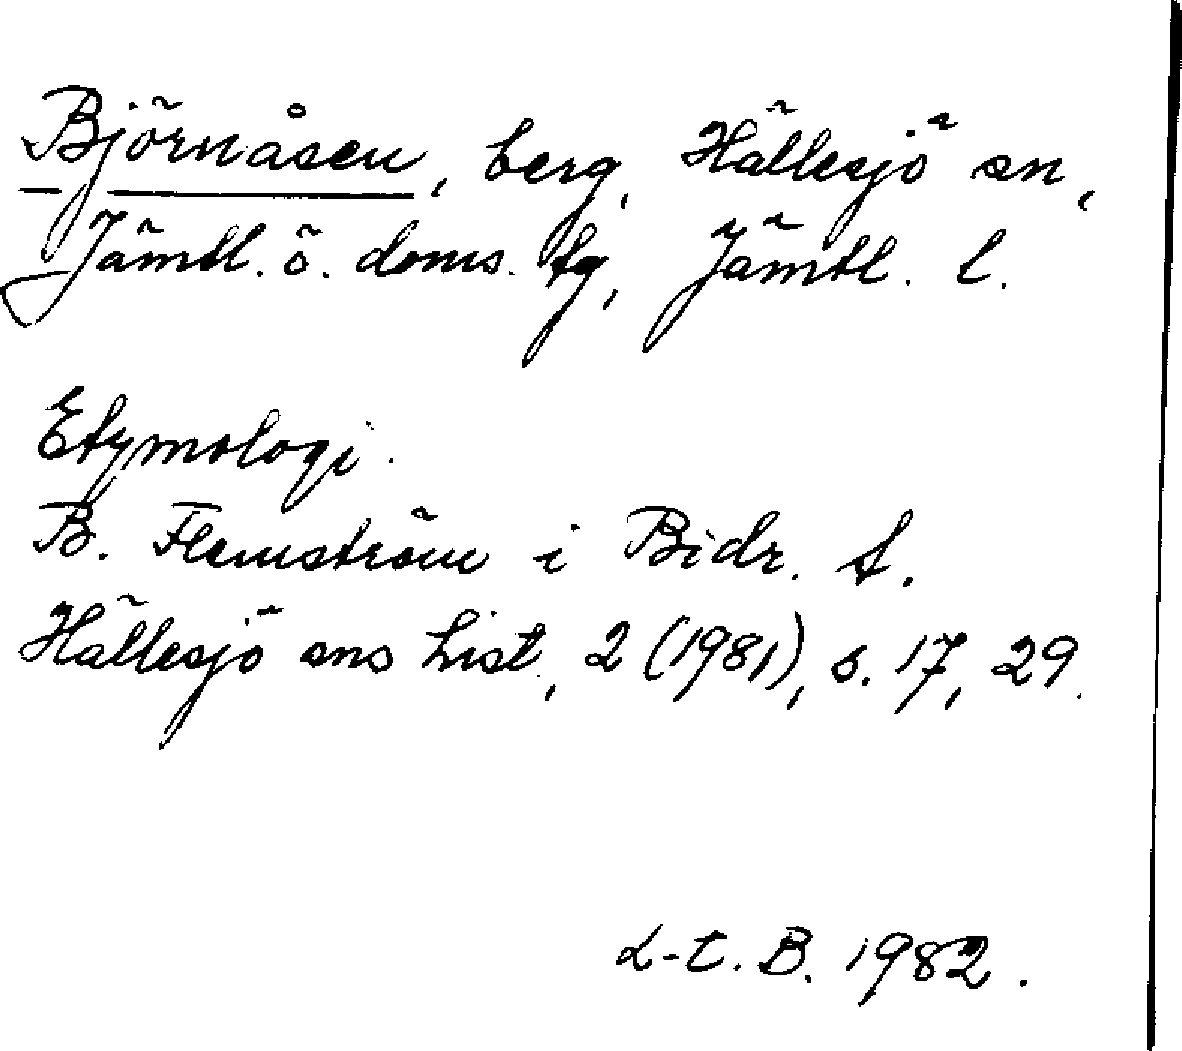 Björnåsen, berg, Hällesjö sn,
Jämtl. ö. doms. tg, Jämtl. l.
Etymologi.
B. Flemström i Bidr. t.
Hällesjö sns hist., 2 (1981), s. 17, 29.
L-t. B. 1982.